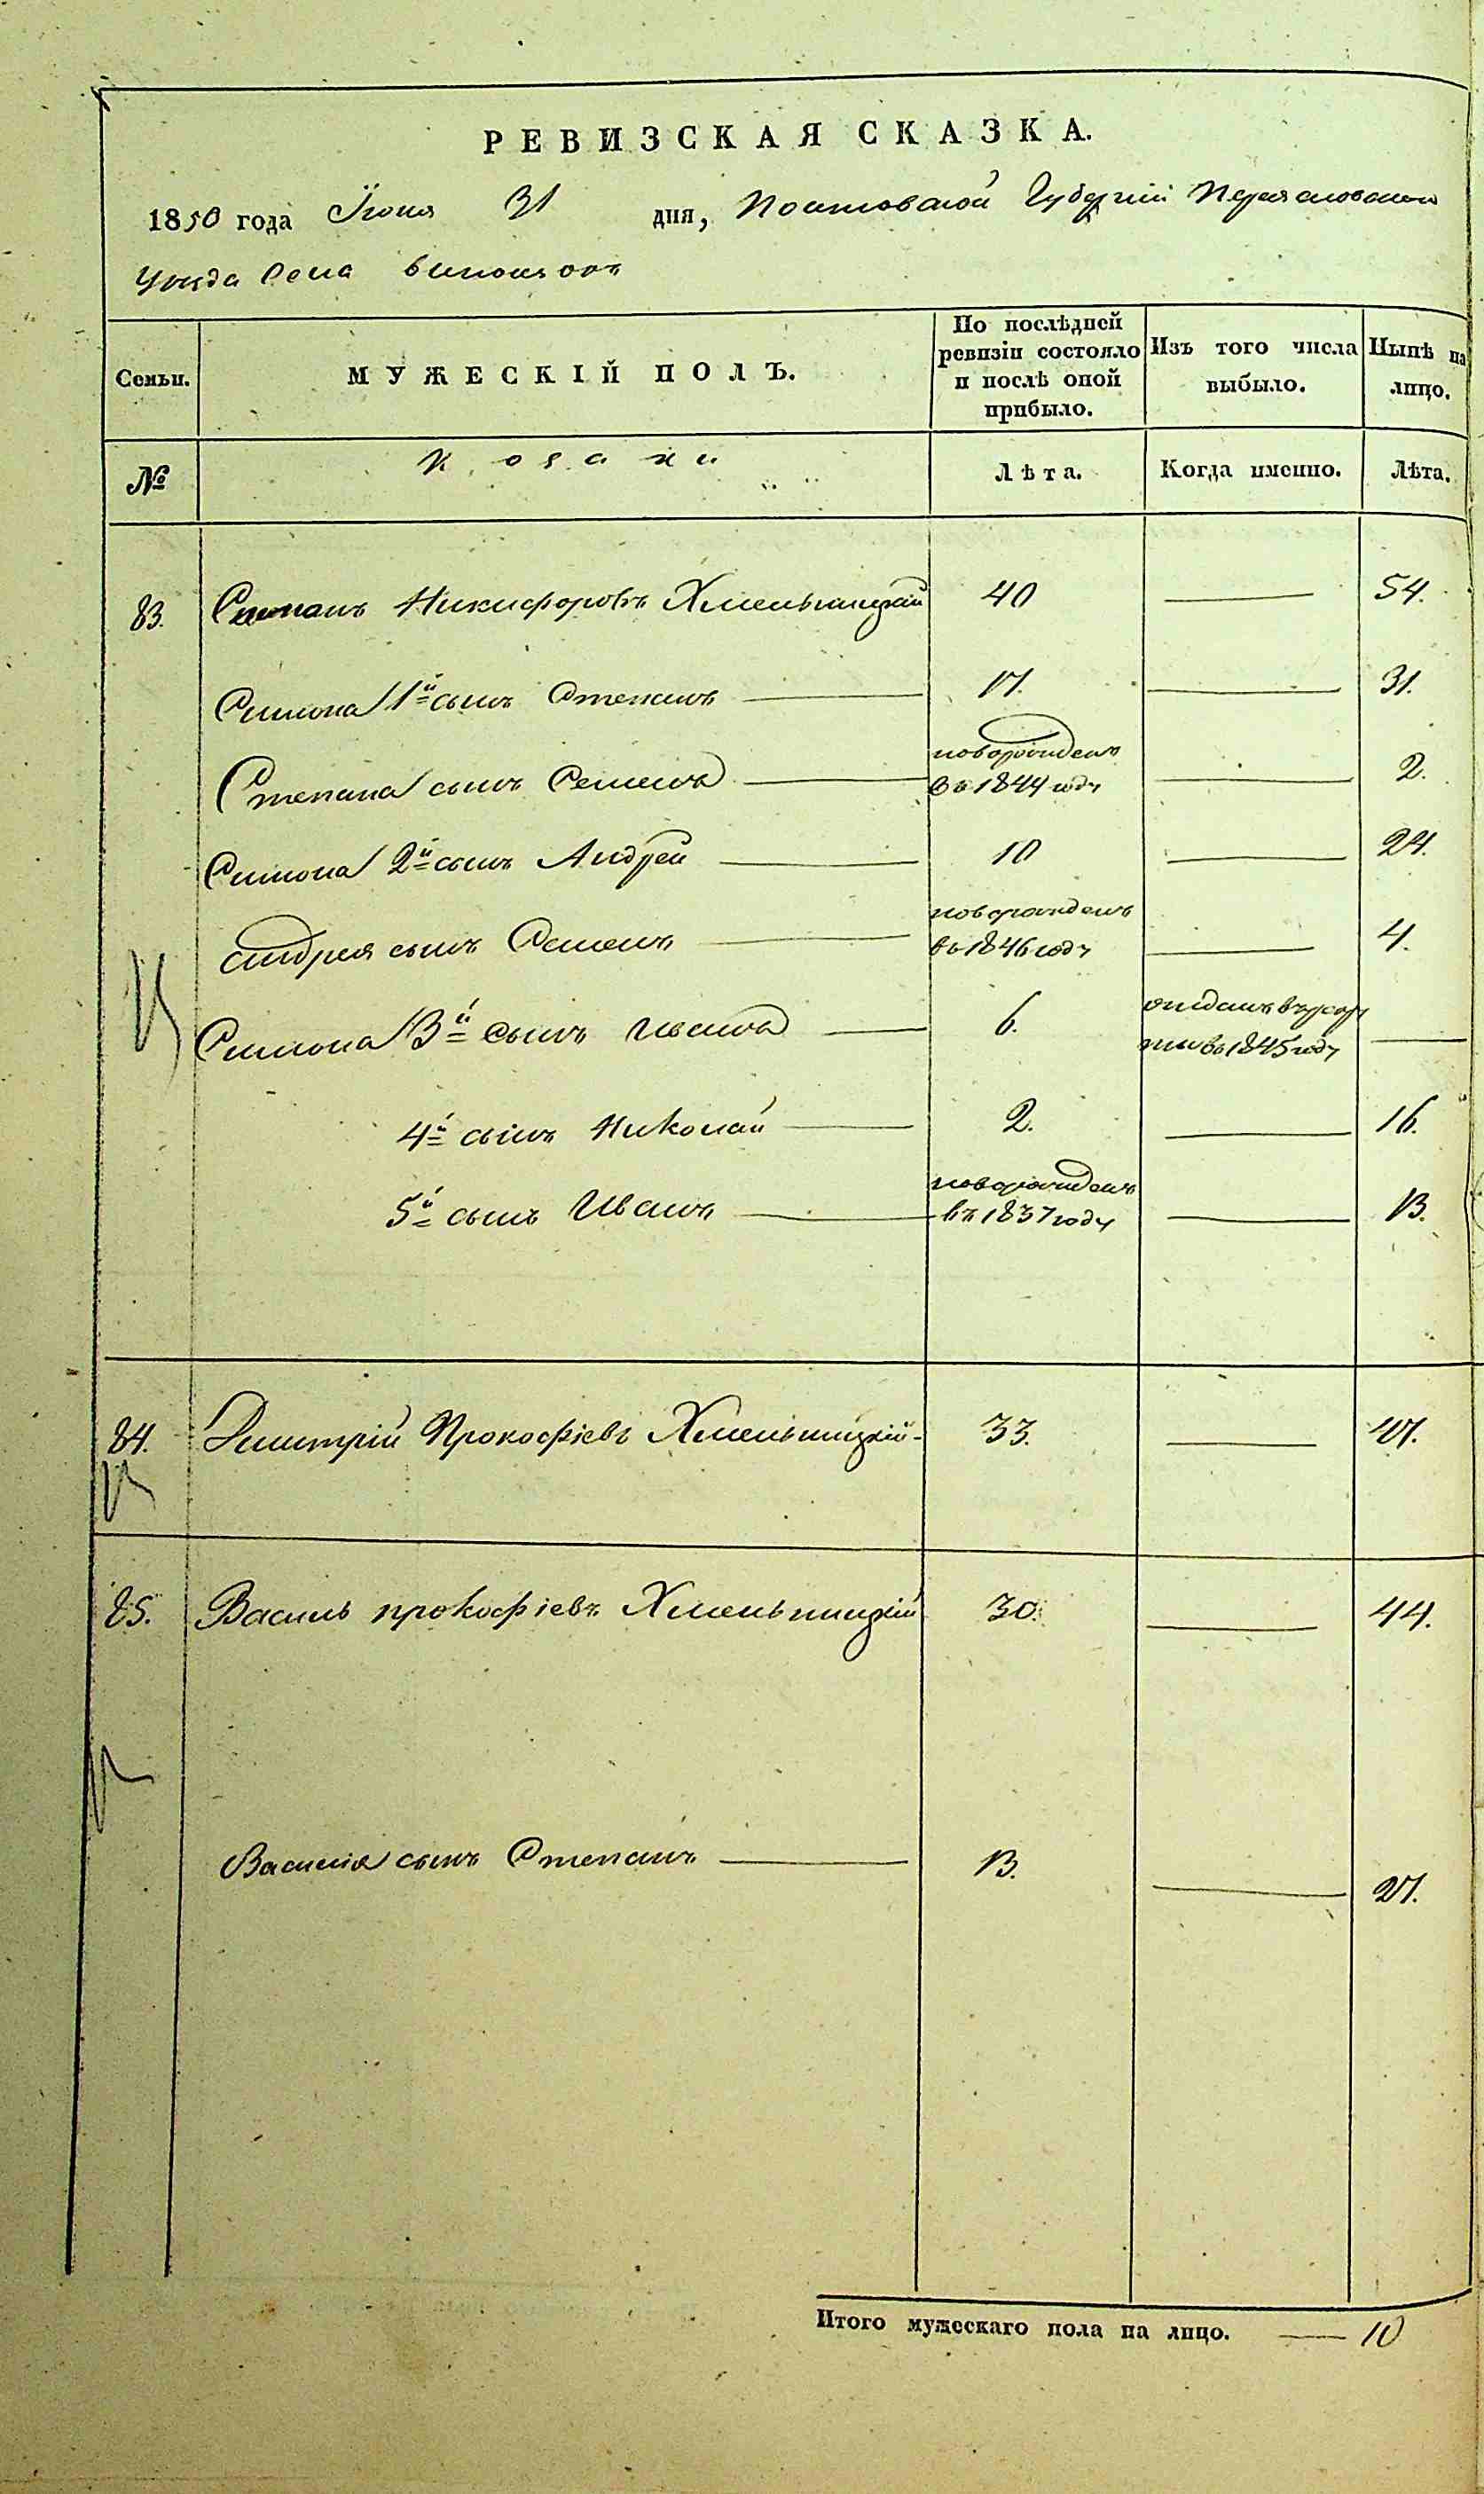 РЕВИЗСКАЯ СКАЗКА.
1850 года Іюня 31 дня, Полтавской Губерніи Переяславскаго
Уезда Села
Семьи. МУЖЕСКІЙ ПОЛЪ. По послѣдней ревизіи состояло и послѣ оной прибыло. Изъ того числа выбыло. Нынѣ на лицо.
№ Козаки Лѣта. Когда именно. Лѣта.
83. Никифоровъ Хмельницкий 40 — 54.
Симона 1й сынъ Степанъ — 17. — 31.
Степана сынъ Семенъ — новорожденъ въ 1844 году — 2.
Симона 2й сынъ Андрей — 10 — 24.
Андрея сынъ Семенъ — новорожденъ въ 1846 году — 4.
Симона 3й сынъ Иванъ — 6. отданъ въ рекруты въ 1845 году —
4й сынъ Николай — 2. — 16.
5й сынъ Иванъ — новорожденъ въ 1837 году — 13.
84. Дмитрій Прокофіевъ Хмельницкій 33. — 47.
85. Василь прокофіевъ Хмельницкій 30. — 44.
Василія сынъ Степанъ — 13. — 27.
Итого мужескаго пола на лицо. — 10